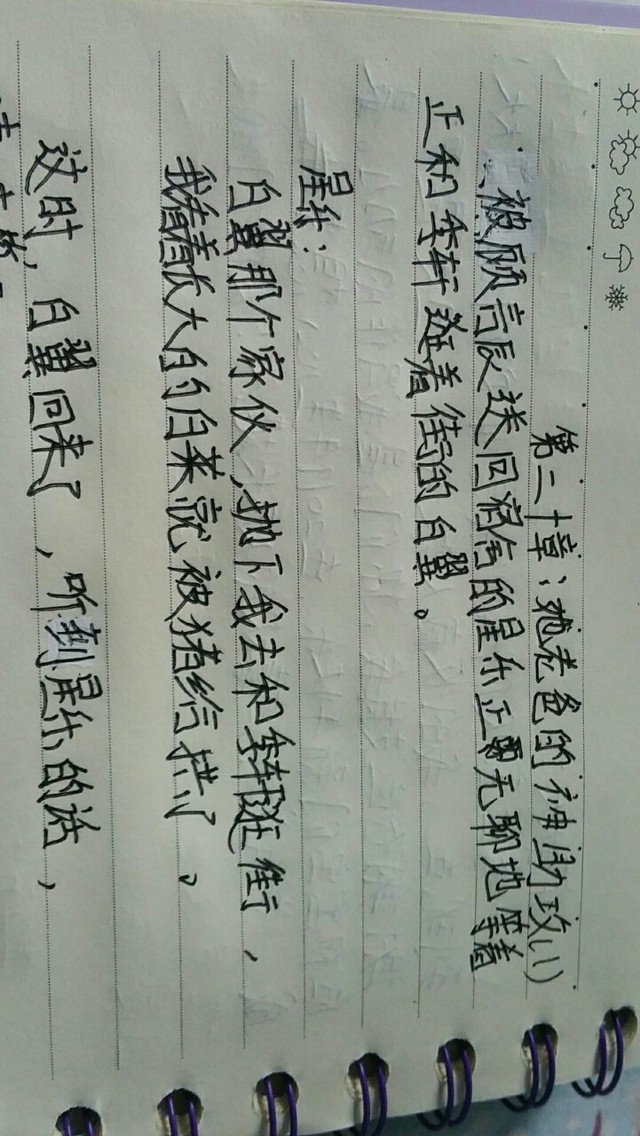 第二十章：她老爸的神助攻(1)
被顾言辰送回宿舍的星乐正要无聊地等着
正和季轩逛着街的白翼。
星乐：
白翼那个家伙，抛下我去和季轩逛街，
我看着长大的白菜就被猪给拱了。
这时，白翼回来了，听到星乐的话，